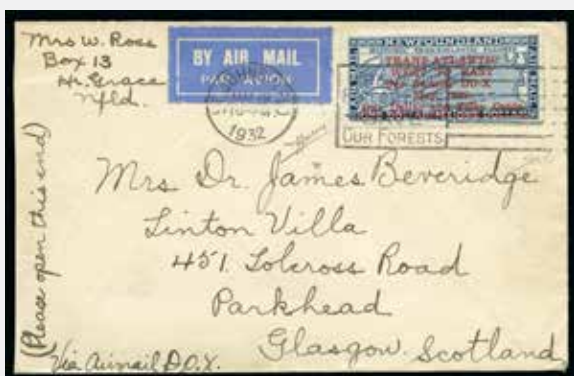 Mrs W. Ross
Box 13
Hr. Grace
Nfld.
BY AIR MAIL
PAR AVION
1932
NEWFOUNDLAND
TRANS-ATLANTIC
WEST TO EAST
OUR FORESTS
Mrs. Dr. James Beveridge
Linton Villa
451. Tolcross Road
Parkhead
Glasgow. Scotland
(Please open this end)
Via Airmail D.O.X.